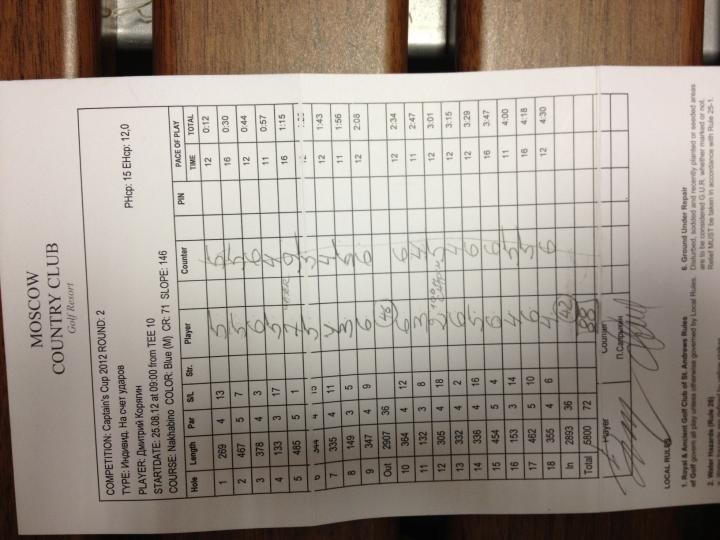 MOSCOW
COUNTRY CLUB
Golf Resort
COMPETITION: Captain's Cup 2012 ROUND: 2
TYPE: Индивид. На счет ударов
PLAYER: Дмитрий Корягин PHcp: 15 EHcp: 12,0
STARTDATE: 26.08.12 at 09:00 from TEE 10
COURSE: Nakhabino COLOR: Blue (M) CR: 71 SLOPE: 146
PACE OF PLAY
Hole Length Par S/L Str. Player Counter PIN TIME TOTAL
1 269 4 13 5 5 12 0:12
2 467 5 7 5 5 16 0:30
3 378 4 3 6 6 12 0:44
4 133 3 17 5 4 11 0:57
5 485 5 1 7 9 16 1:15
344 4 5 3
7 335 4 11 4 4 12 1:43
8 149 3 5 3 5 11 1:56
9 347 4 9 6 6 12 2:08
Out 2907 36 (46)
10 364 4 12 6 6 12 2:34
11 132 3 8 3 4 11 2:47
12 305 4 18 2 5 12 3:01
13 332 4 2 6 4 12 3:15
14 336 4 16 5 6 12 3:29
15 454 5 4 6 6 16 3:47
16 153 3 14 4 5 11 4:00
17 462 5 10 6 5 16 4:18
18 355 4 6 4 6 12 4:30
In 2893 36 (42)
Total 5800 72 88
Player Counter
П.Сапрыкин
LOCAL RULES
1. Royal & Ancient Golf Club of St. Andrews Rules
of Golf govern all play unless otherwise governed by Local Rules.
2. Water Hazards (Rule 26)
6. Ground Under Repair
Disturbed, sodded and recently planted or seeded areas
are to be considered G.U.R. whether marked or not.
Relief MUST be taken in accordance with Rule 25-1.